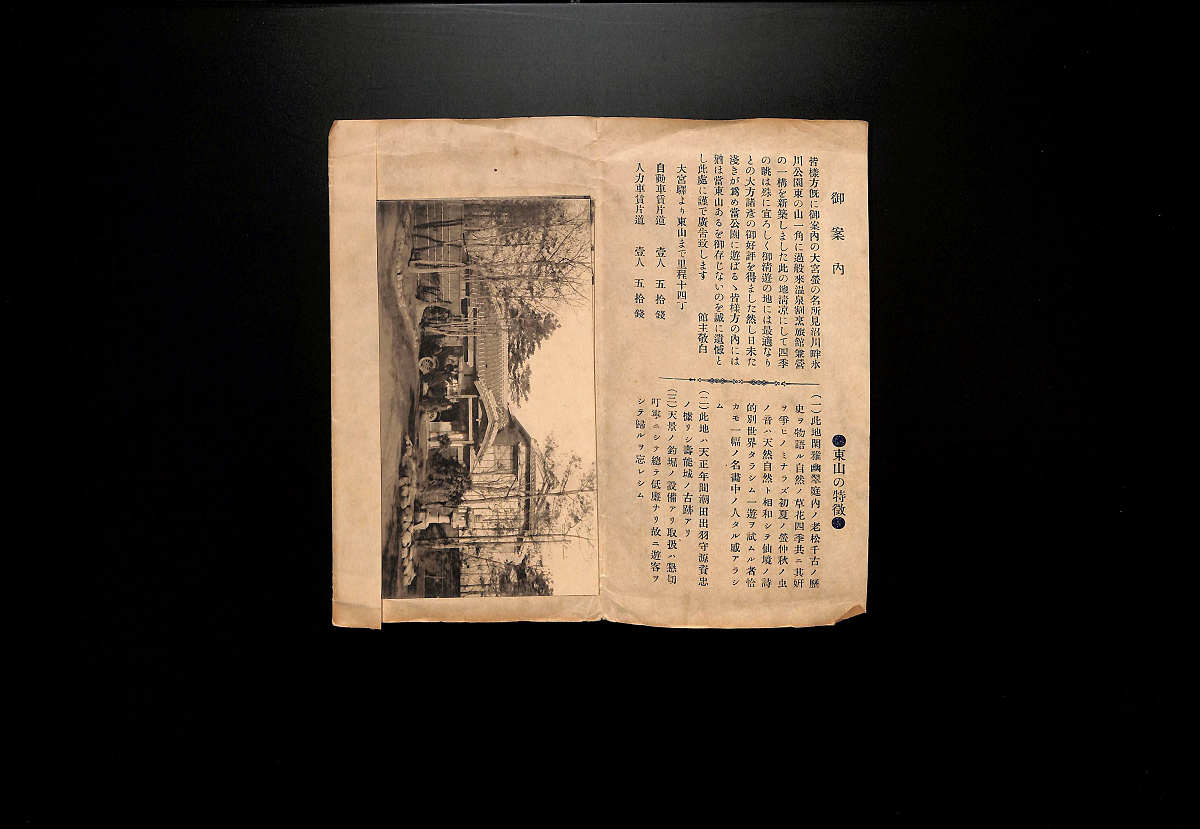 御案内
皆樣方既に御案內の大宮螢の名所見沼川畔氷
川公園東の山一角に過般來溫泉割烹旅館兼營
の一構を新築しました此の地淸凉にして四季
の眺は殊に宜ろしく御淸遊の地には最適なり
との大方諸彥の御好評を得ました然し日未た
淺きが爲め當公園に遊ばるゝ皆樣方の內には
猶ほ當東山あるを御存じないのを誠に遺憾と
し此處に謹で廣吿致します　館主敬白
大宮驛より東山まで里程十四丁
自動車賃片道　壹人　五拾錢
人力車賃片道　壹人　五拾錢
東山の特徵
(一)此地閑雅幽翠庭內ノ老松千古ノ歷
史ヲ物語ル自然ノ草花四季共ニ其姸
ヲ爭ヒノミナラズ初夏ノ螢仲秋ノ虫
ノ音ハ天然自然ト相和シテ仙境ノ詩
的別世界タラシム一遊ヲ試ムル者恰
カモ一幅ノ名畫中ノ人タル感アラシ
ム
(二)此地ハ天正年間潮田出羽守源資忠
ノ據リシ壽能城ノ古跡アリ
(三)天景ノ釣堀ノ設備アリ取扱ハ懇切
叮寧ニシテ總テ低廉ナリ故ニ遊客ヲ
シテ歸ルヲ忘レシム